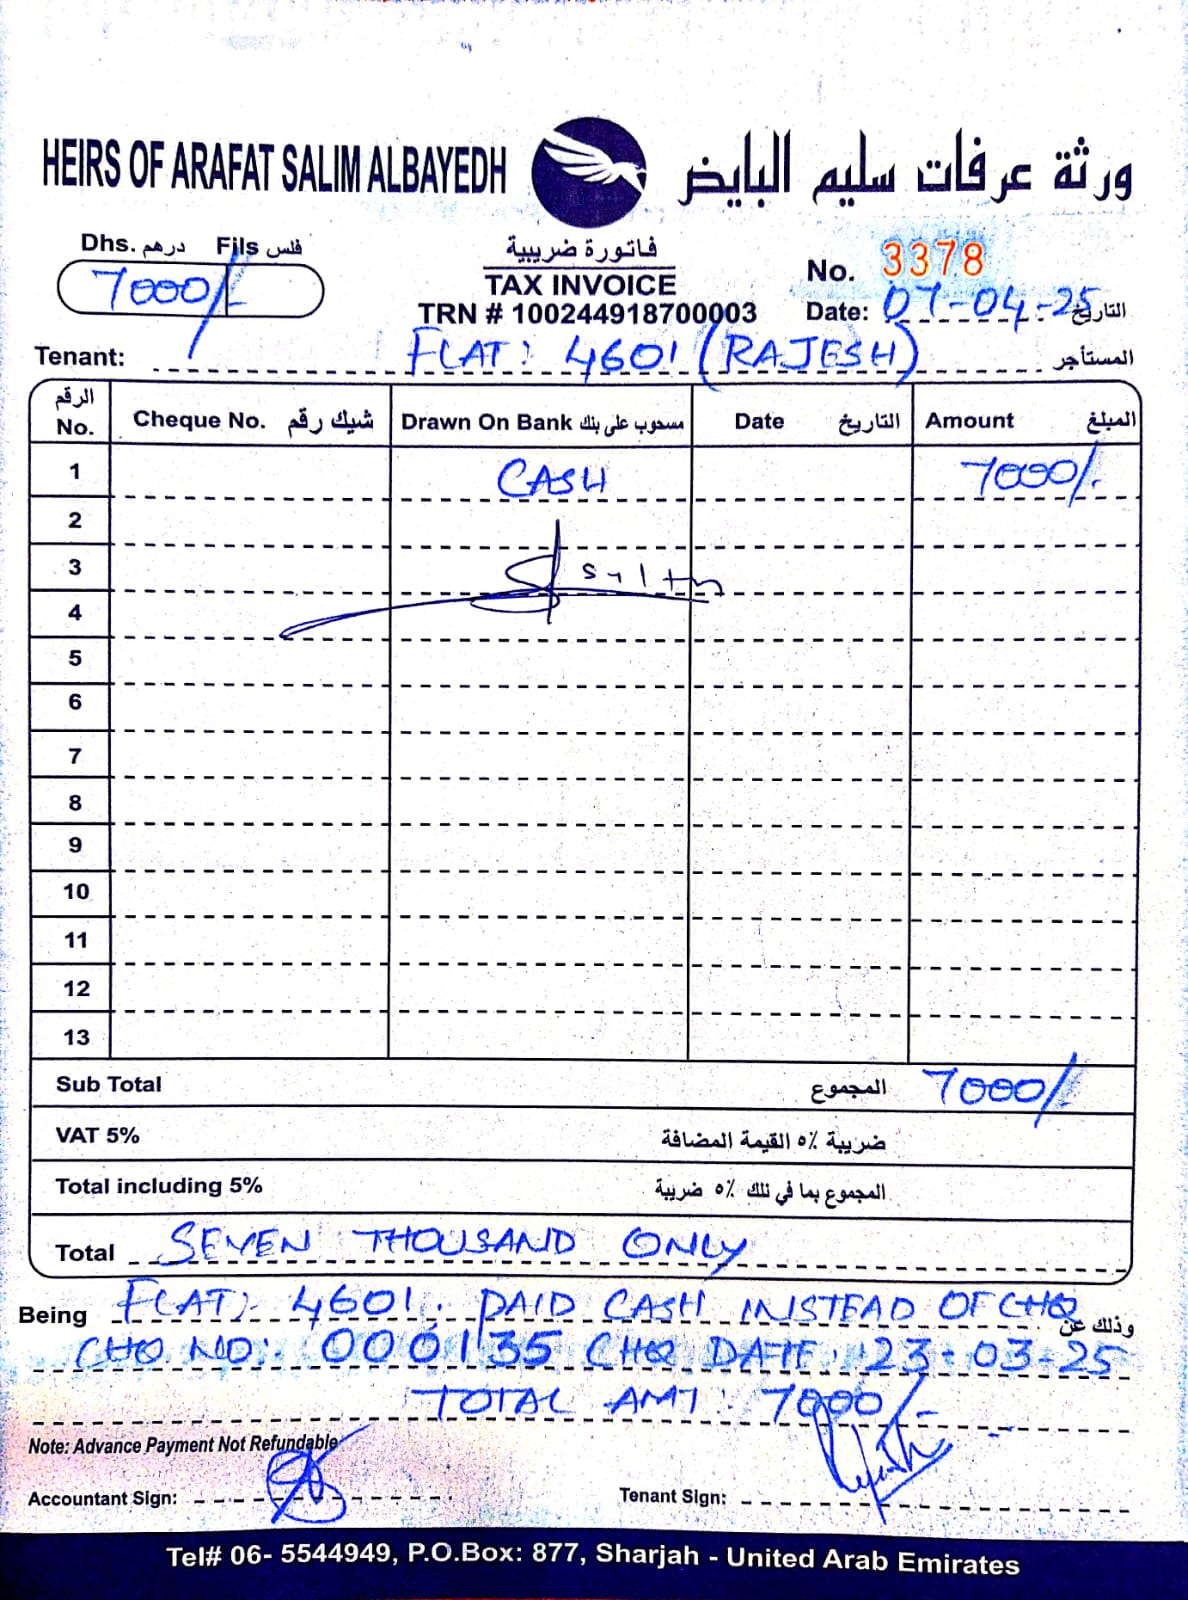 HEIRS OF ARAFAT SALIM ALBAYEDH ورثة عرفات سليم البايض
Dhs. درهم Fils فلس
7000/-
فاتورة ضريبية
TAX INVOICE
TRN # 100244918700003
No. 3378
Date: 07-04-25 التاريخ
Tenant: FLAT: 4601 (RAJESH) المستأجر
الرقم No. Cheque No. شيك رقم Drawn On Bank مسحوب على بنك Date التاريخ Amount المبلغ
1 CASH 7000/-
2
3
4
5
6
7
8
9
10
11
12
13
Sub Total المجموع 7000/-
VAT 5% ضريبة ٥٪ القيمة المضافة
Total including 5% المجموع بما في ذلك ٥٪ ضريبة
Total SEVEN THOUSAND ONLY
Being FLAT:- 4601. PAID CASH INSTEAD OF CHQ وذلك عن
CHQ NO:- 000135 CHQ DATE: 23-03-25
TOTAL AMT: 7000/-
Note: Advance Payment Not Refundable
Accountant Sign: Tenant Sign:
Tel# 06- 5544949, P.O.Box: 877, Sharjah - United Arab Emirates